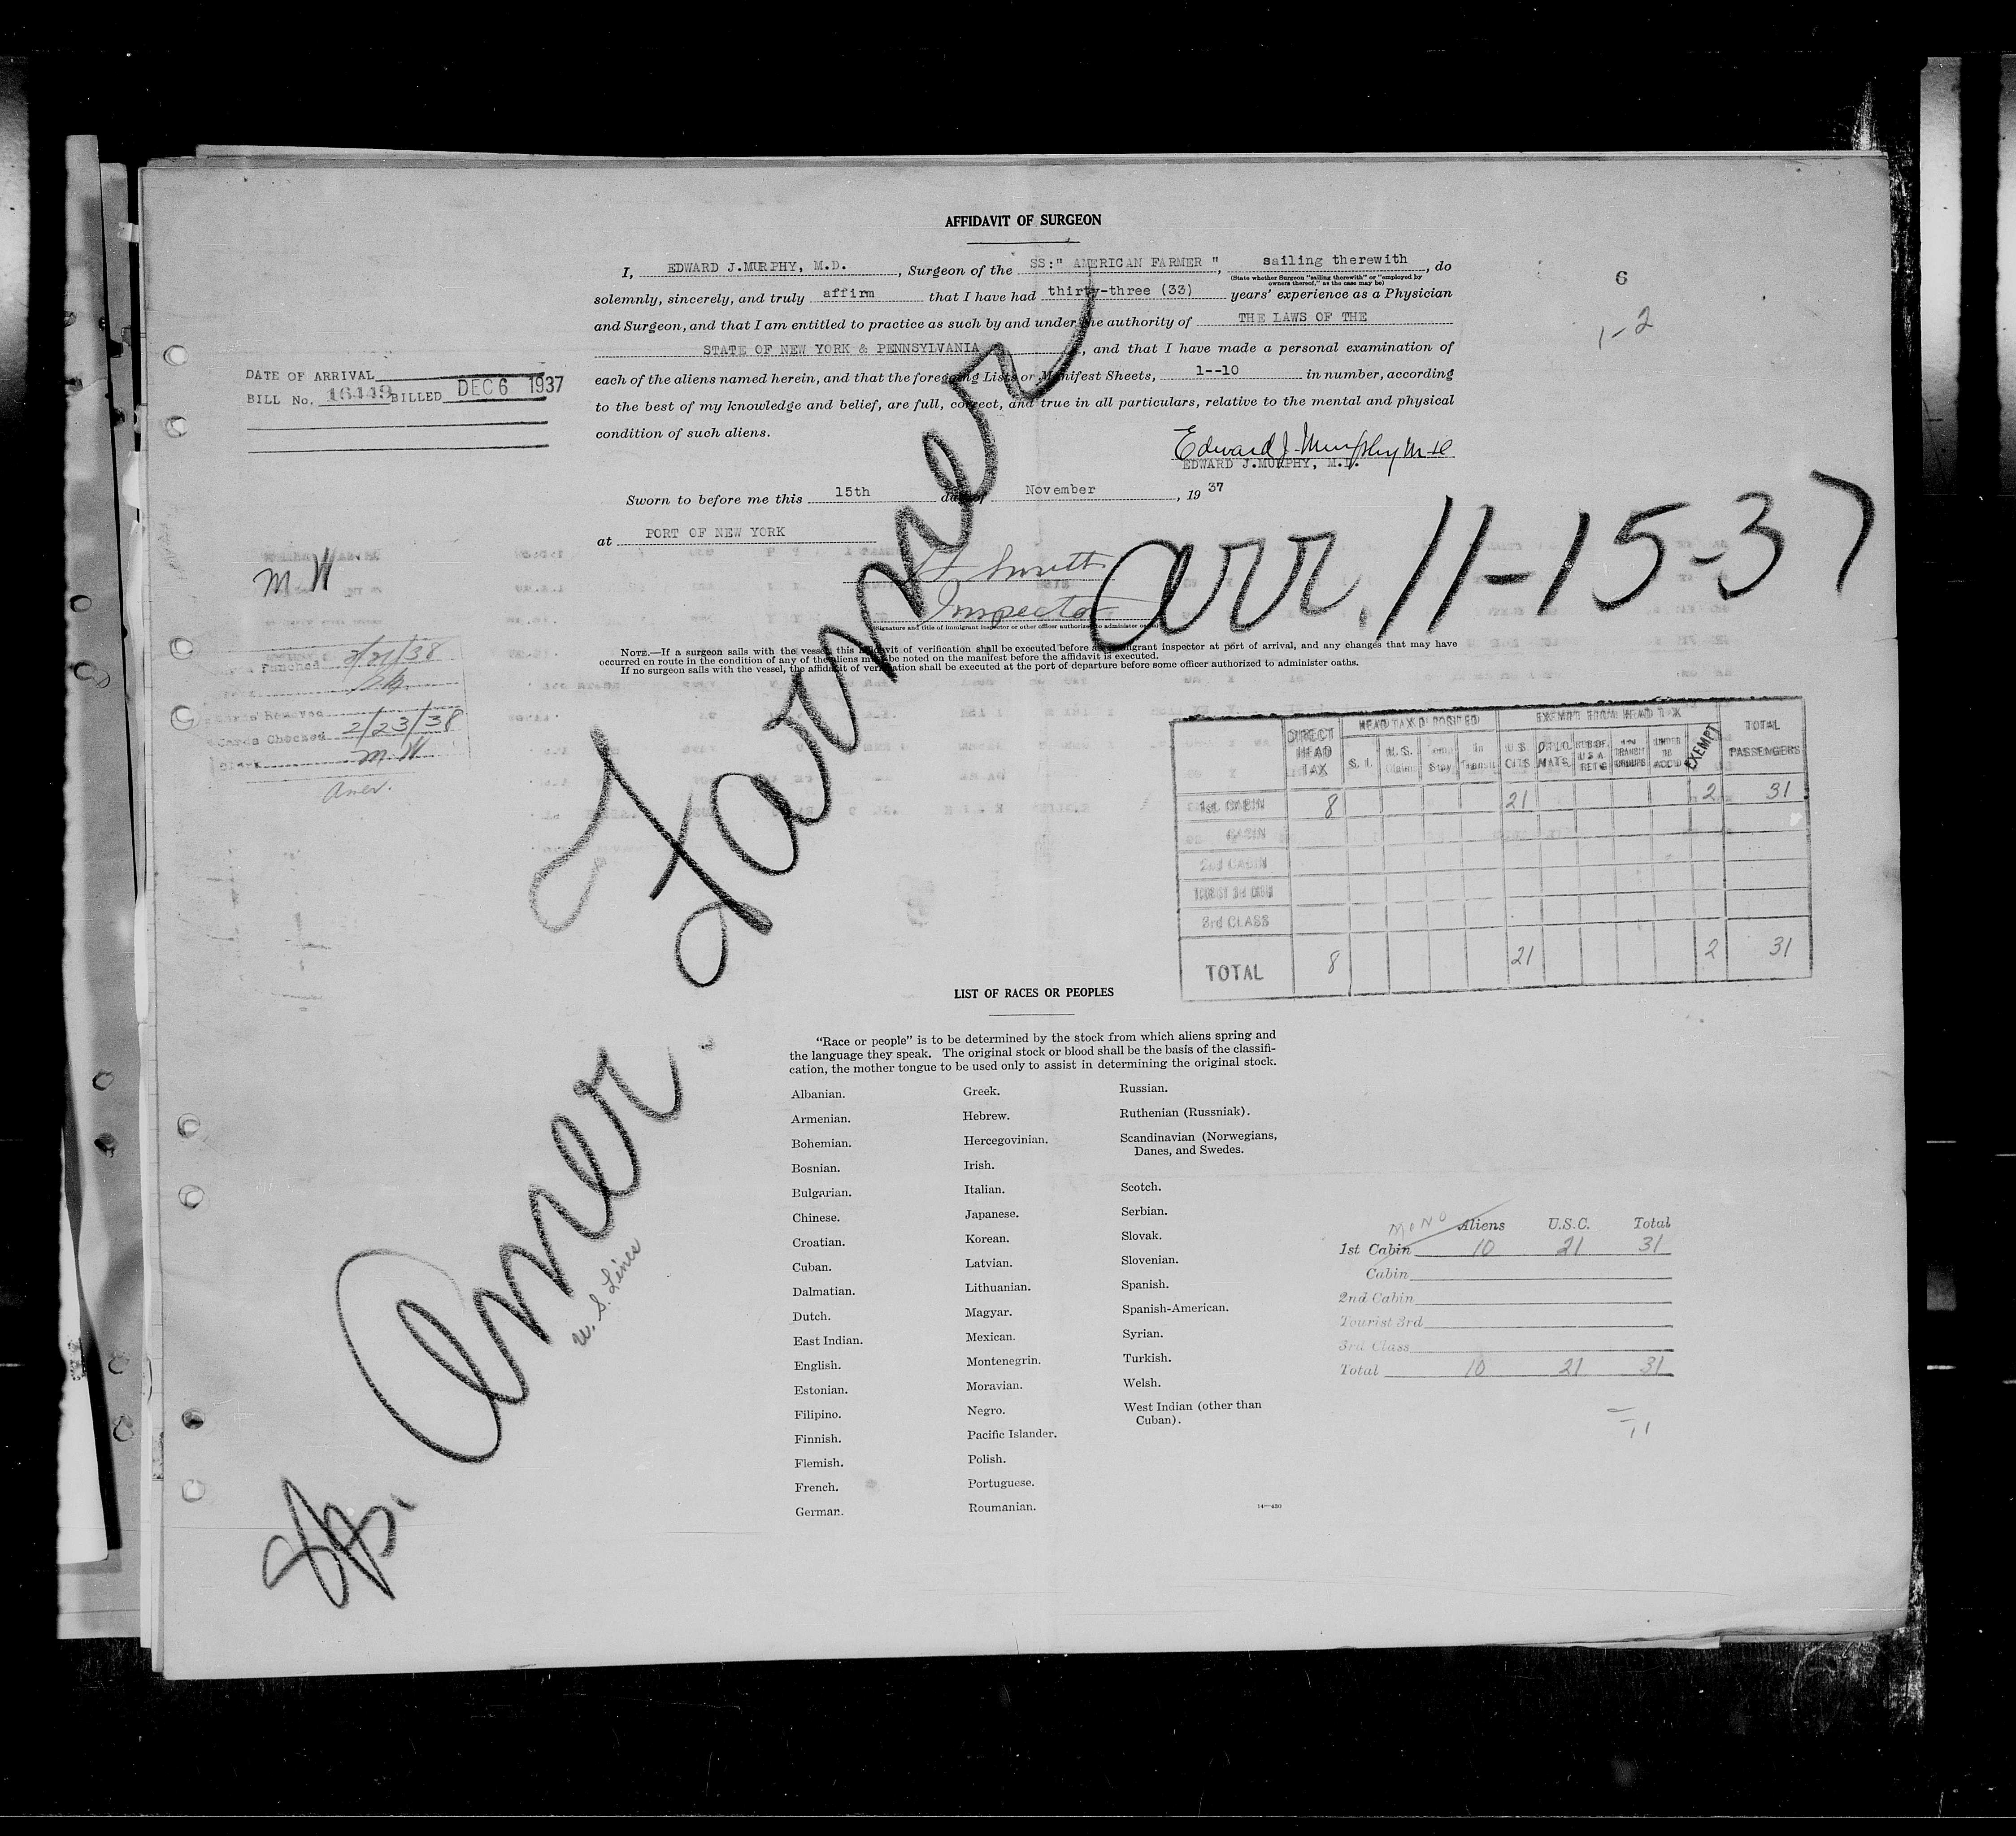 AFFIDAVIT OF SURGEON
I, EDWARD J.MURPHY, M.D. , Surgeon of the SS:" AMERICAN FARMER ", sailing therewith , do
(State whether Surgeon "sailing therewith" or "employed by
owners thereof," as the case may be)
solemnly, sincerely, and truly affirm that I have had thirty-three (33) years' experience as a Physician
and Surgeon, and that I am entitled to practice as such by and under the authority of THE LAWS OF THE
STATE OF NEW YORK & PENNSYLVANIA , and that I have made a personal examination of
each of the aliens named herein, and that the foregoing Lists or Manifest Sheets, 1--10 in number, according
to the best of my knowledge and belief, are full, correct, and true in all particulars, relative to the mental and physical
condition of such aliens.
6
1-2
DATE OF ARRIVAL
BILL No. 16449 BILLED DEC 6 1937
Edward J. Murphy M.D
EDWARD J.MURPHY, M.D.
Sworn to before me this 15th day of November , 19 37
at PORT OF NEW YORK
Smith
Inspector
(Signature and title of immigrant inspector or other officer authorized to administer oaths)
arr. 11-15-37
M W
NOTE.—If a surgeon sails with the vessel, this affidavit of verification shall be executed before an immigrant inspector at port of arrival, and any changes that may have
occurred en route in the condition of any of the aliens must be noted on the manifest before the affidavit is executed.
If no surgeon sails with the vessel, the affidavit of verification shall be executed at the port of departure before some officer authorized to administer oaths.
Punched 2/21/38
Cards Checked 2/23/38
Clerk M.W
Amer.
SS. Amer. Farmer
U.S. Lines
DIRECT HEAD TAX | HEAD TAX DEPOSITED | EXEMPT FROM HEAD TAX | TOTAL PASSENGERS
S. I. | U. S. Claims | Temp Stay | In Transit | U S CITS | DIPLO. MATS | RES OF U S A RET'G | TRANSIT GROUPS | UNDER 16 ACC'D | EXEMPT
1st CABIN 8 21 2 31
CABIN
2nd CABIN
TOURIST 3rd CABIN
3rd CLASS
TOTAL 8 21 2 31
LIST OF RACES OR PEOPLES
"Race or people" is to be determined by the stock from which aliens spring and
the language they speak. The original stock or blood shall be the basis of the classifi-
cation, the mother tongue to be used only to assist in determining the original stock.
Albanian.
Armenian.
Bohemian.
Bosnian.
Bulgarian.
Chinese.
Croatian.
Cuban.
Dalmatian.
Dutch.
East Indian.
English.
Estonian.
Filipino.
Finnish.
Flemish.
French.
German.
Greek.
Hebrew.
Hercegovinian.
Irish.
Italian.
Japanese.
Korean.
Latvian.
Lithuanian.
Magyar.
Mexican.
Montenegrin.
Moravian.
Negro.
Pacific Islander.
Polish.
Portuguese.
Roumanian.
Russian.
Ruthenian (Russniak).
Scandinavian (Norwegians,
Danes, and Swedes.
Scotch.
Serbian.
Slovak.
Slovenian.
Spanish.
Spanish-American.
Syrian.
Turkish.
Welsh.
West Indian (other than
Cuban).
14—430
MONO Aliens U.S.C. Total
1st Cabin 10 21 31
Cabin
2nd Cabin
Tourist 3rd
3rd Class
Total 10 21 31